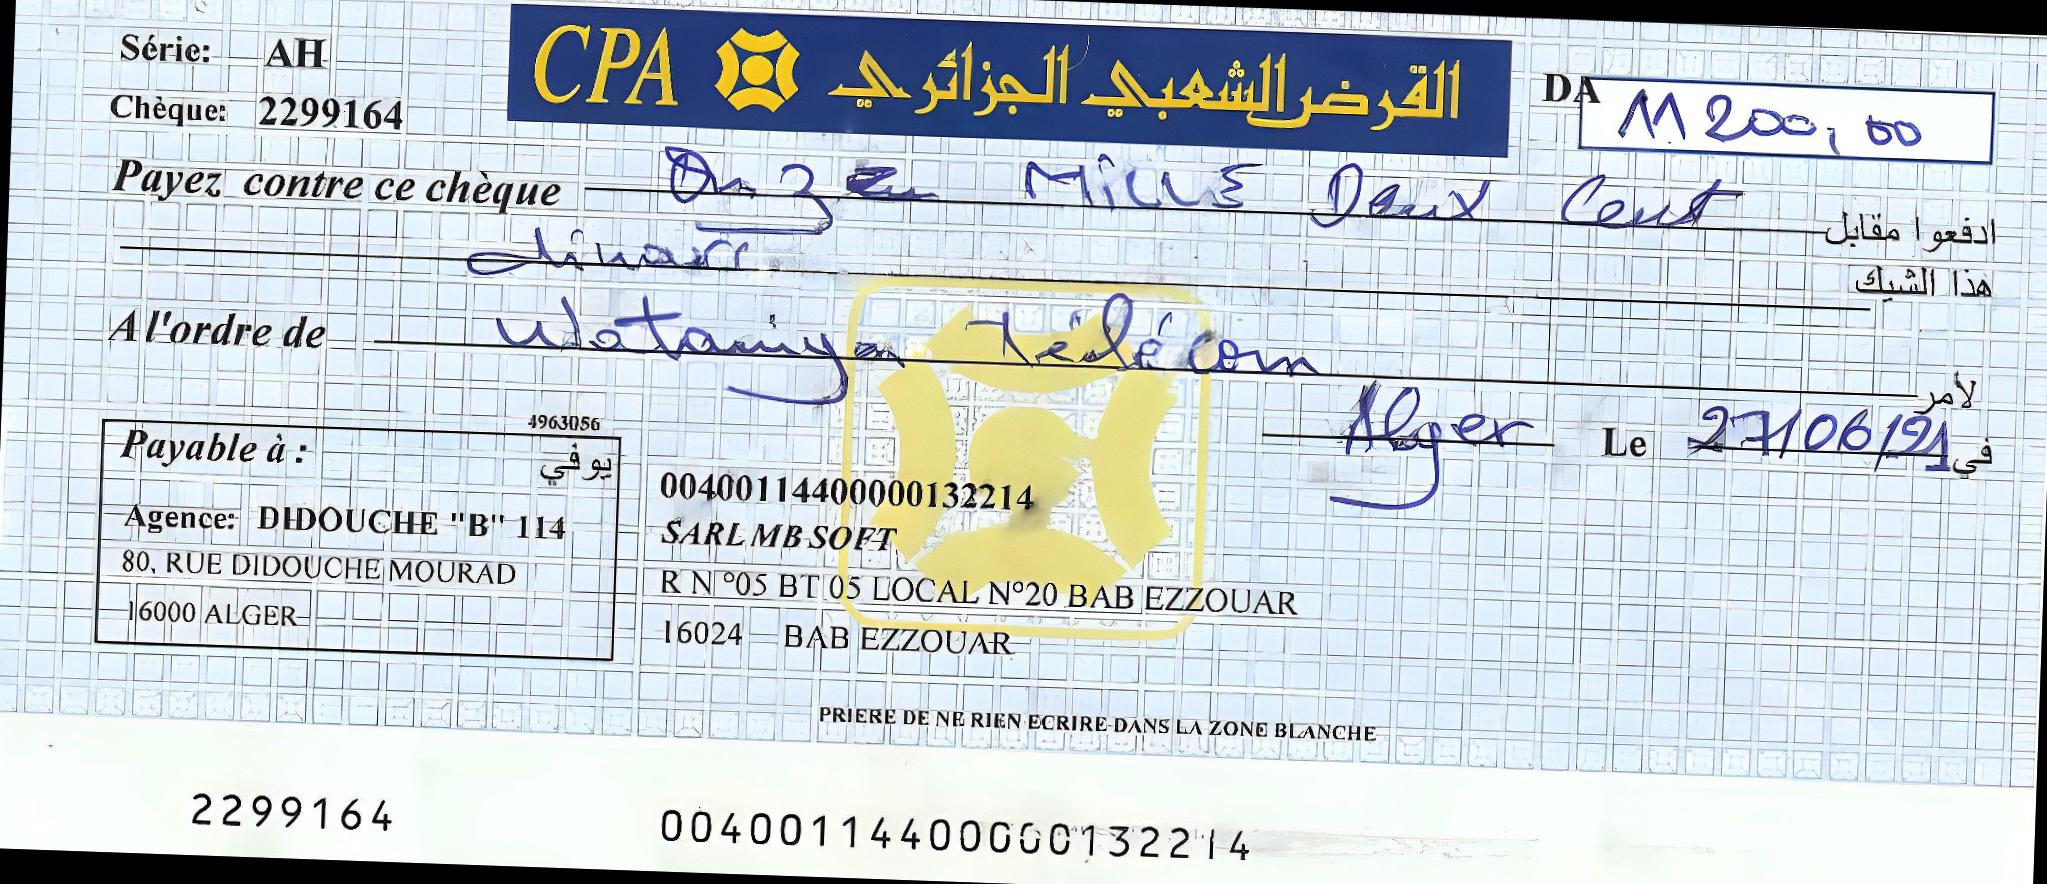 Série: AH
CPA القرض الشعبي الجزائري
DA 11 200,00
Chèque: 2299164
Payez contre ce chèque Onze Mille Deux Cent ادفعوا مقابل
dinars هذا الشيك
A l'ordre de Wataniya Télécom لأمر
Alger Le 27/06/21 في
4963056
Payable à : يوفي
Agence: DIDOUCHE "B" 114
80, RUE DIDOUCHE MOURAD
16000 ALGER
00400114400000132214
SARL MB SOFT
R N °05 BT 05 LOCAL N°20 BAB EZZOUAR
16024 BAB EZZOUAR
PRIERE DE NE RIEN ECRIRE DANS LA ZONE BLANCHE
2299164 00400114400000132214